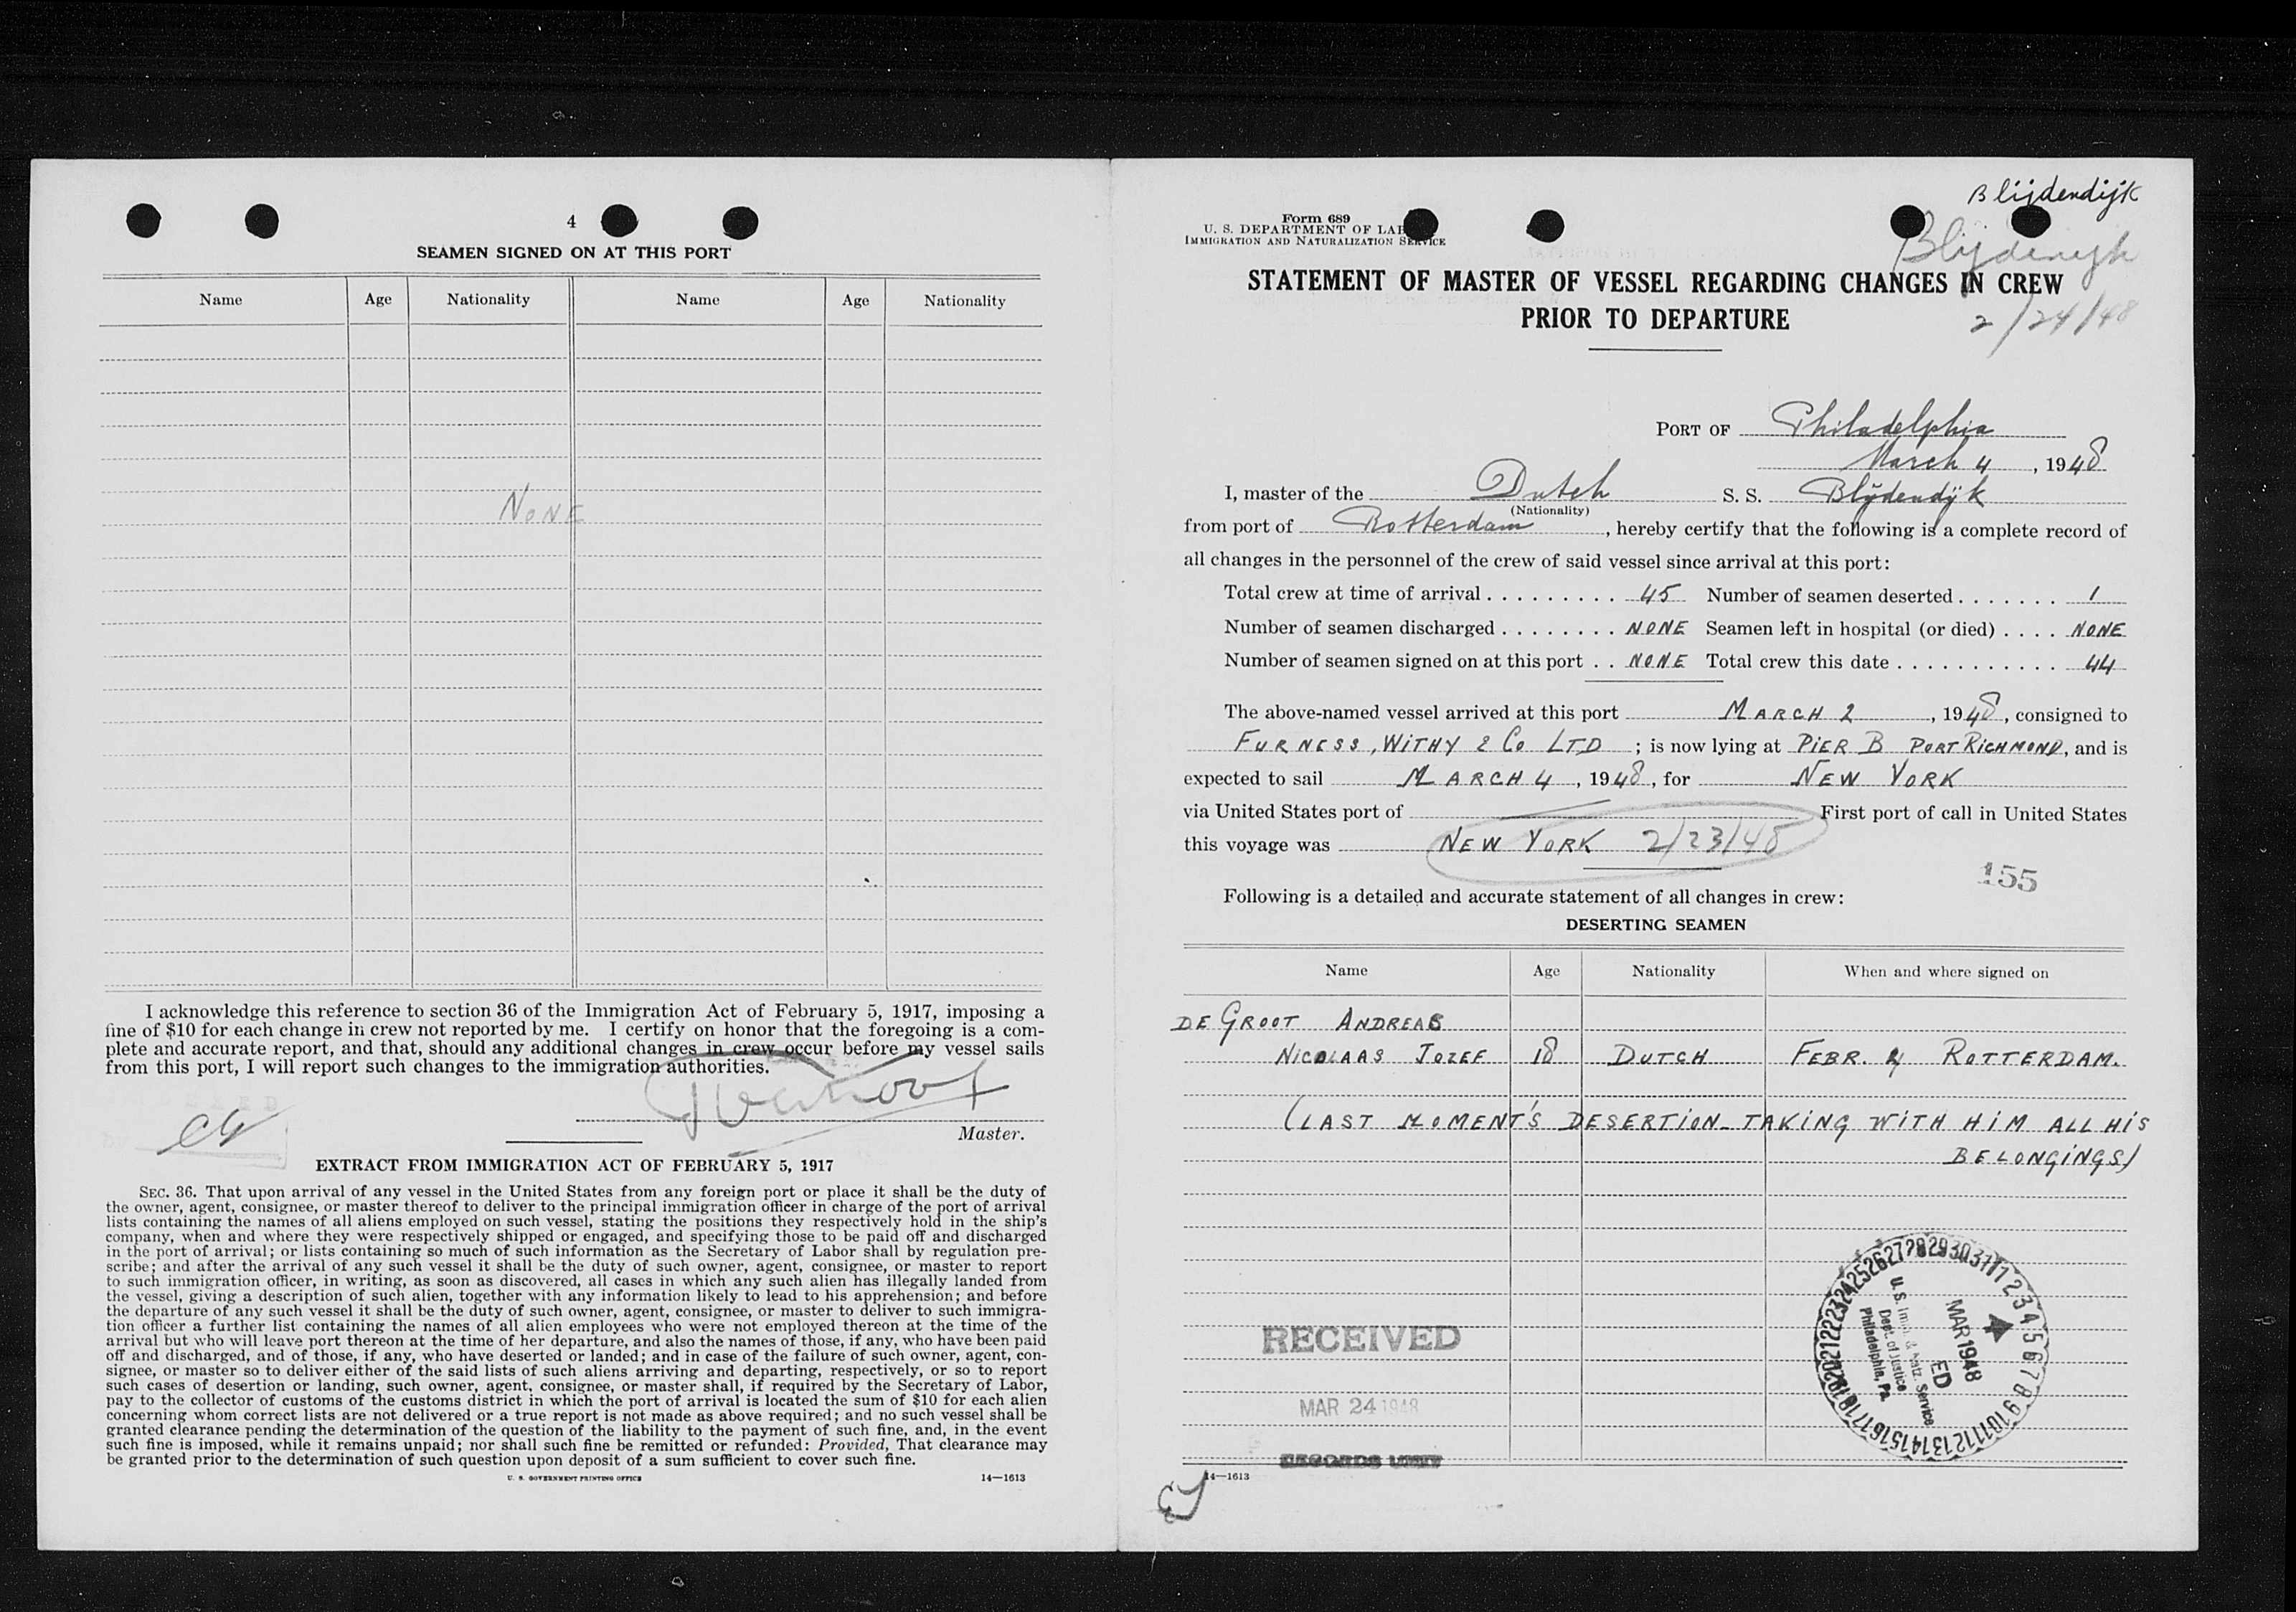 4
SEAMEN SIGNED ON AT THIS PORT
Name Age Nationality Name Age Nationality
NONE
I acknowledge this reference to section 36 of the Immigration Act of February 5, 1917, imposing a
fine of $10 for each change in crew not reported by me. I certify on honor that the foregoing is a com-
plete and accurate report, and that, should any additional changes in crew occur before my vessel sails
from this port, I will report such changes to the immigration authorities.
Master.
EXTRACT FROM IMMIGRATION ACT OF FEBRUARY 5, 1917
SEC. 36. That upon arrival of any vessel in the United States from any foreign port or place it shall be the duty of
the owner, agent, consignee, or master thereof to deliver to the principal immigration officer in charge of the port of arrival
lists containing the names of all aliens employed on such vessel, stating the positions they respectively hold in the ship's
company, when and where they were respectively shipped or engaged, and specifying those to be paid off and discharged
in the port of arrival; or lists containing so much of such information as the Secretary of Labor shall by regulation pre-
scribe; and after the arrival of any such vessel it shall be the duty of such owner, agent, consignee, or master to report
to such immigration officer, in writing, as soon as discovered, all cases in which any such alien has illegally landed from
the vessel, giving a description of such alien, together with any information likely to lead to his apprehension; and before
the departure of any such vessel it shall be the duty of such owner, agent, consignee, or master to deliver to such immigra-
tion officer a further list containing the names of all alien employees who were not employed thereon at the time of the
arrival but who will leave port thereon at the time of her departure, and also the names of those, if any, who have been paid
off and discharged, and of those, if any, who have deserted or landed; and in case of the failure of such owner, agent, con-
signee, or master so to deliver either of the said lists of such aliens arriving and departing, respectively, or so to report
such cases of desertion or landing, such owner, agent, consignee, or master shall, if required by the Secretary of Labor,
pay to the collector of customs of the customs district in which the port of arrival is located the sum of $10 for each alien
concerning whom correct lists are not delivered or a true report is not made as above required; and no such vessel shall be
granted clearance pending the determination of the question of the liability to the payment of such fine, and, in the event
such fine is imposed, while it remains unpaid; nor shall such fine be remitted or refunded: Provided, That clearance may
be granted prior to the determination of such question upon deposit of a sum sufficient to cover such fine.
U. S. GOVERNMENT PRINTING OFFICE 14—1613
Blijdendijk
Form 689
U. S. DEPARTMENT OF LAB
IMMIGRATION AND NATURALIZATION SERVICE
STATEMENT OF MASTER OF VESSEL REGARDING CHANGES IN CREW
PRIOR TO DEPARTURE
2/24/48
PORT OF Philadelphia
March 4, 1948
I, master of the Dutch S. S. Blijdendijk
(Nationality)
from port of Rotterdam, hereby certify that the following is a complete record of
all changes in the personnel of the crew of said vessel since arrival at this port:
Total crew at time of arrival . . . . . . . . . 45 Number of seamen deserted . . . . . . . 1
Number of seamen discharged . . . . . . . . NONE Seamen left in hospital (or died) . . . . NONE
Number of seamen signed on at this port . . NONE Total crew this date . . . . . . . . . . . . 44
The above-named vessel arrived at this port MARCH 2, 1948, consigned to
FURNESS, WITHY & Co LTD; is now lying at PIER B PORT RICHMOND, and is
expected to sail MARCH 4, 1948, for NEW YORK
via United States port of First port of call in United States
this voyage was NEW YORK 2/23/48
155
Following is a detailed and accurate statement of all changes in crew:
DESERTING SEAMEN
Name Age Nationality When and where signed on
DE GROOT ANDREAS
NICOLAAS JOZEF 18 DUTCH FEBR. ROTTERDAM.
(LAST MOMENT'S DESERTION TAKING WITH HIM ALL HIS
BELONGINGS)
RECEIVED
MAR 24 1948
RECORDS UNIT
MAR 1948
U.S. Imm. & Natz. Service
Dept. of Justice
Philadelphia, Pa.
14—1613